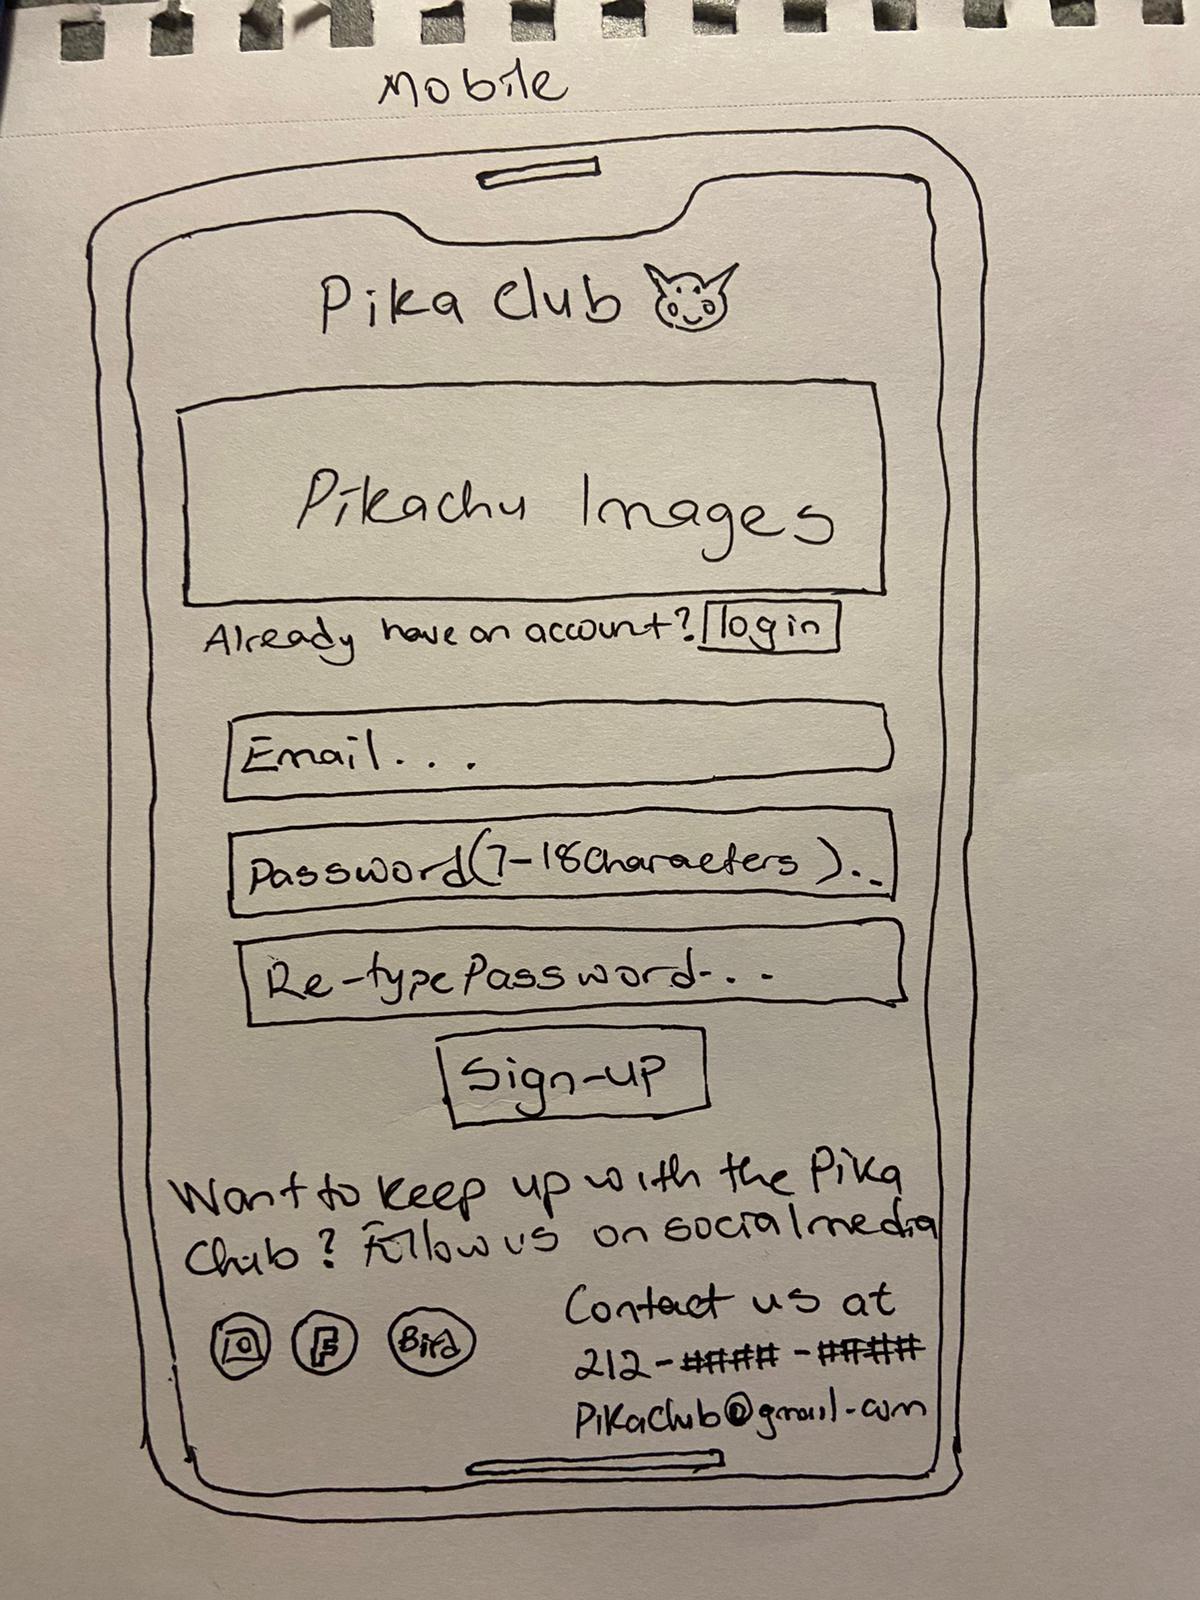 Mobile
Pika Club
Pikachu Images
Already have an account? login
Email...
Password(7-18Characters)...
Re-type Password...
Sign-up
Want to keep up with the Pika
Club? Follow us on social media
F Bird
Contact us at
212-####-####
PikaClub@gmail.com